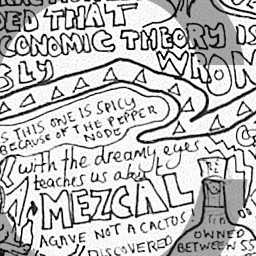 DED THAT
ECONOMIC THEORY IS
WRON
THIS ONE IS SPICY
BECAUSE OF THE PEPPER
NODE
with the dreamy eyes
teaches us about
MEZCAL
AGAVE NOT A CACTUS
DISCOVERED
OWNED
BETWEEN SS